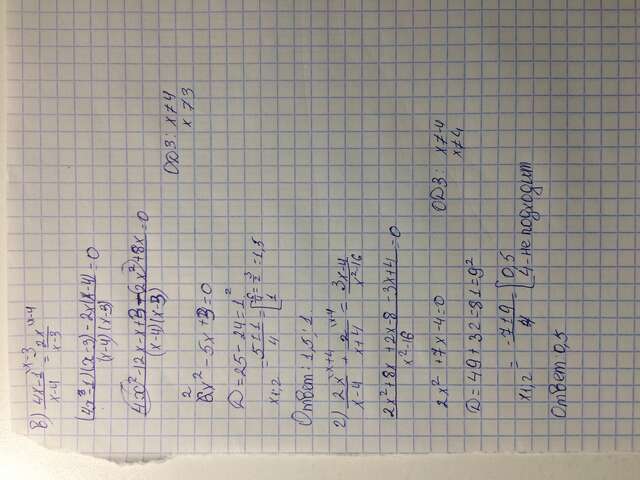 в) (4x-1)/(x-4) ^x-3 = 2x/(x-3) ^x-4
((4x-1)(x-3) - 2x(x-4))/((x-4)(x-3)) = 0
(4x²-12x-x+3-2x²+8x)/((x-4)(x-3)) = 0
ОДЗ: x≠4
x≠3
2x²-5x+3=0
D=25-24=1²
x₁,₂ = (5±1)/4 = [6/4=3/2=1,5
1
Ответ: 1,5; 1
г) 2x/(x-4) ^x+4 + 2/(x+4) ^x-4 = (3x-4)/(x²-16)
(2x²+8x+2x-8-3x+4)/(x²-16) = 0
2x²+7x-4=0
ОДЗ: x≠-4
x≠4
D=49+32=81=9²
x₁,₂ = (-7±9)/4 = [0,5
4-не подходит
Ответ: 0,5